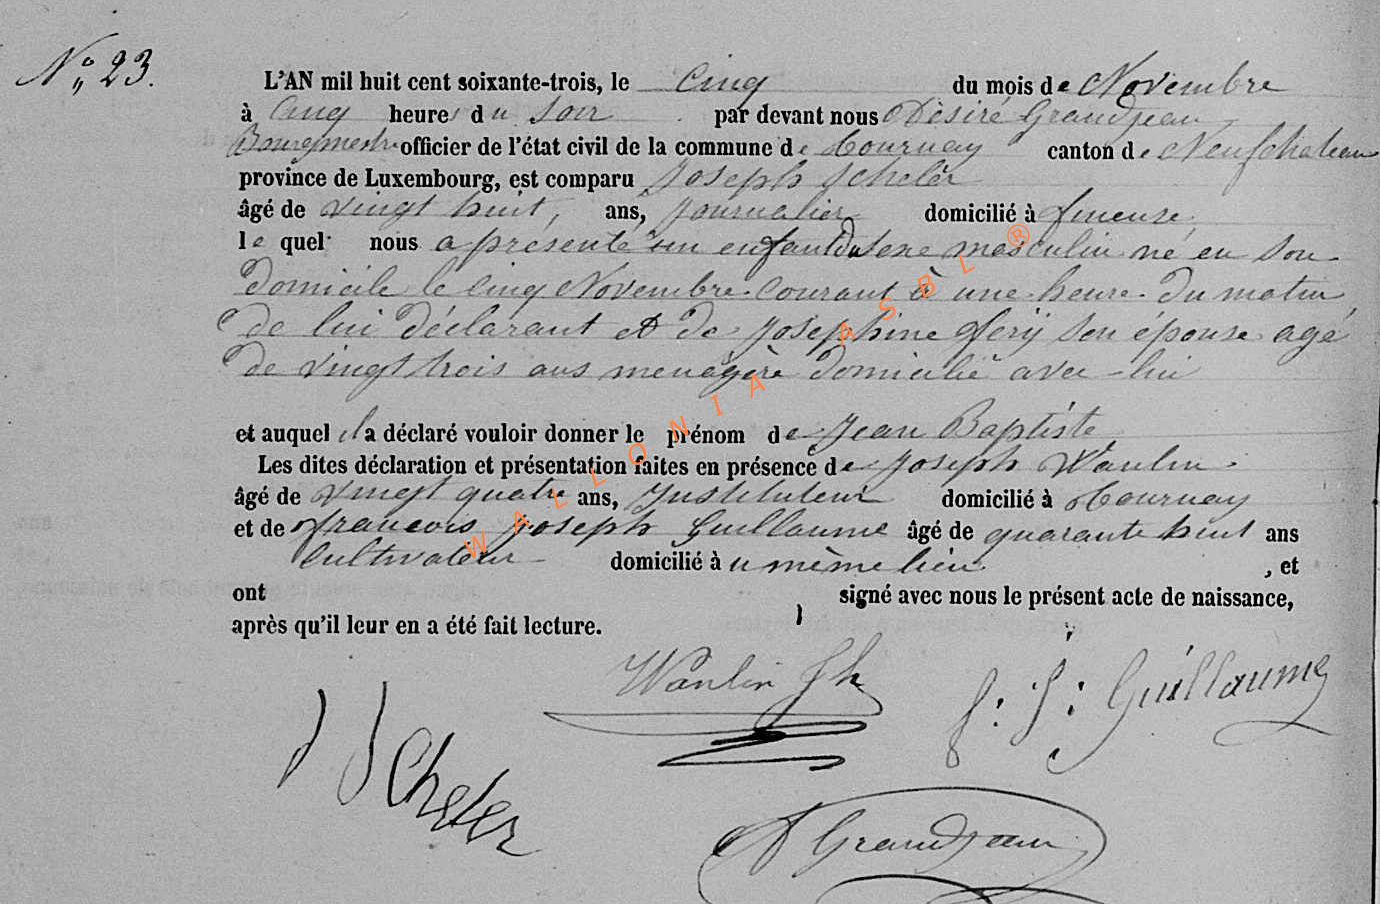 N° 23.
L'AN mil huit cent soixante-trois, le Cinq du mois de Novembre
à Cinq heures du Soir par devant nous Désiré Grandjean
Bourgmestre officier de l'état civil de la commune de Tournay canton de Neufchateau
province de Luxembourg, est comparu Joseph Scheler
âgé de vingt huit, ans, Journalier domicilié à
le quel nous a présenté un enfant du sexe masculin né en son
domicile le Cinq Novembre Courant à une heure du matin
de lui déclarant et de Josephine son épouse agé
de vingt trois ans menagère domicilié avec lui
et auquel il a déclaré vouloir donner le prénom de Jean Baptiste
Les dites déclaration et présentation faites en présence de Joseph Wanlin
âgé de vingt quatre ans, Instituteur domicilié à Tournay
et de francois Joseph Guillaume âgé de quarante huit ans
Cultivateur domicilié à u même lieu , et
ont signé avec nous le présent acte de naissance,
après qu'il leur en a été fait lecture.
Wanlin Jh
f: J: Guillaume
J Scheler
D Grandjean
WALLONIA ASBL ®